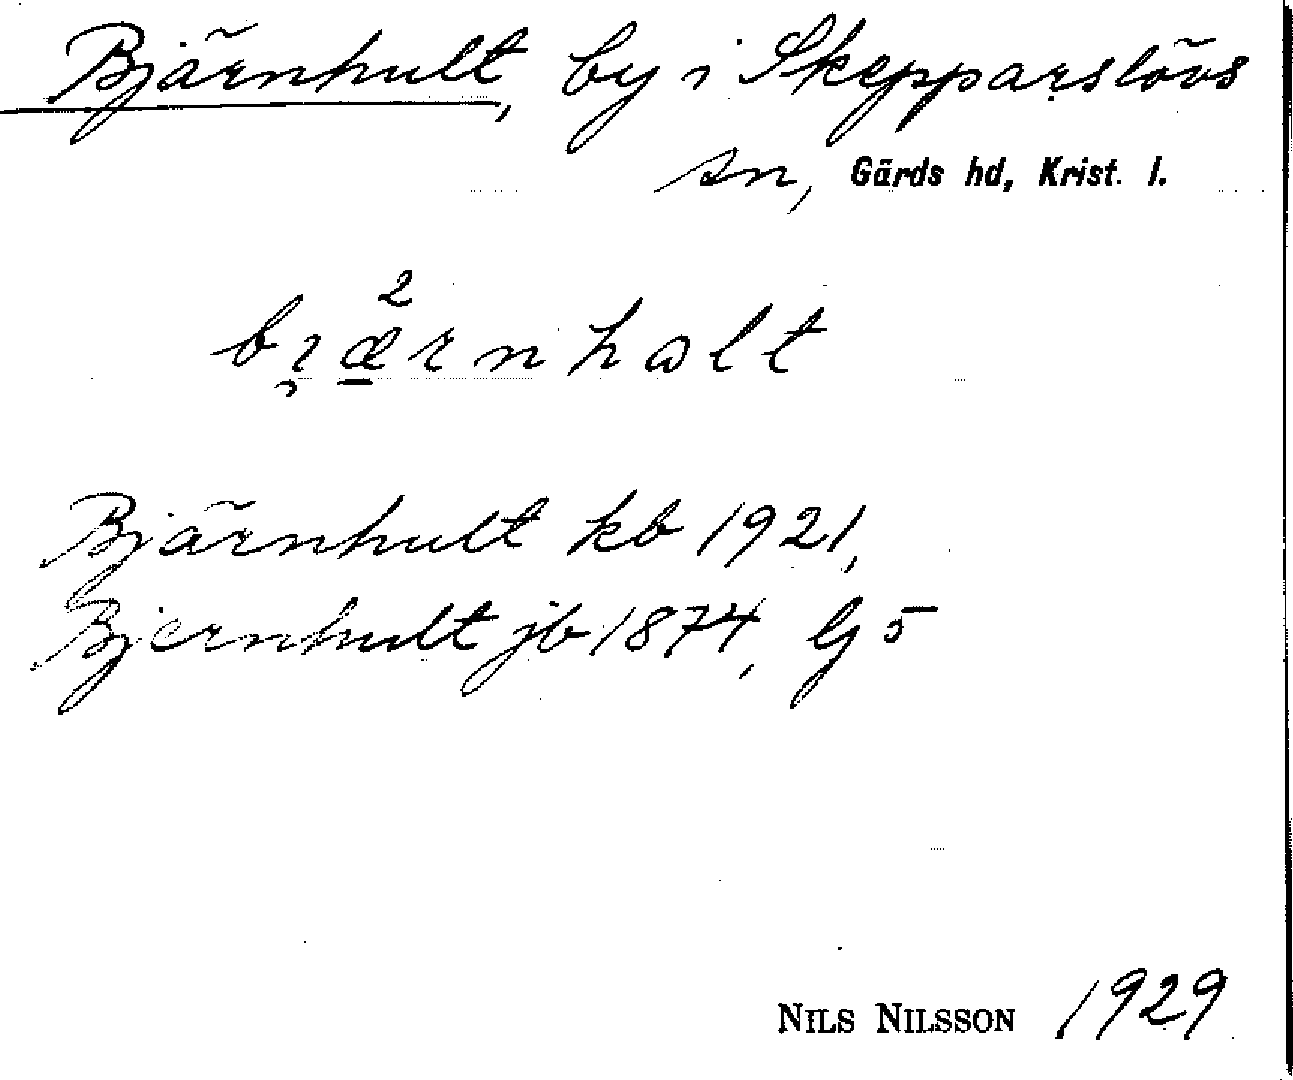 Bjärnhult, by i Skepparslövs
sn, Gärds hd, Krist. l.
2
bı̯æ̱rnhalt
Bjärnhult kb 1921,
Bjernhult jb 1874, G 5
NILS NILSSON 1929